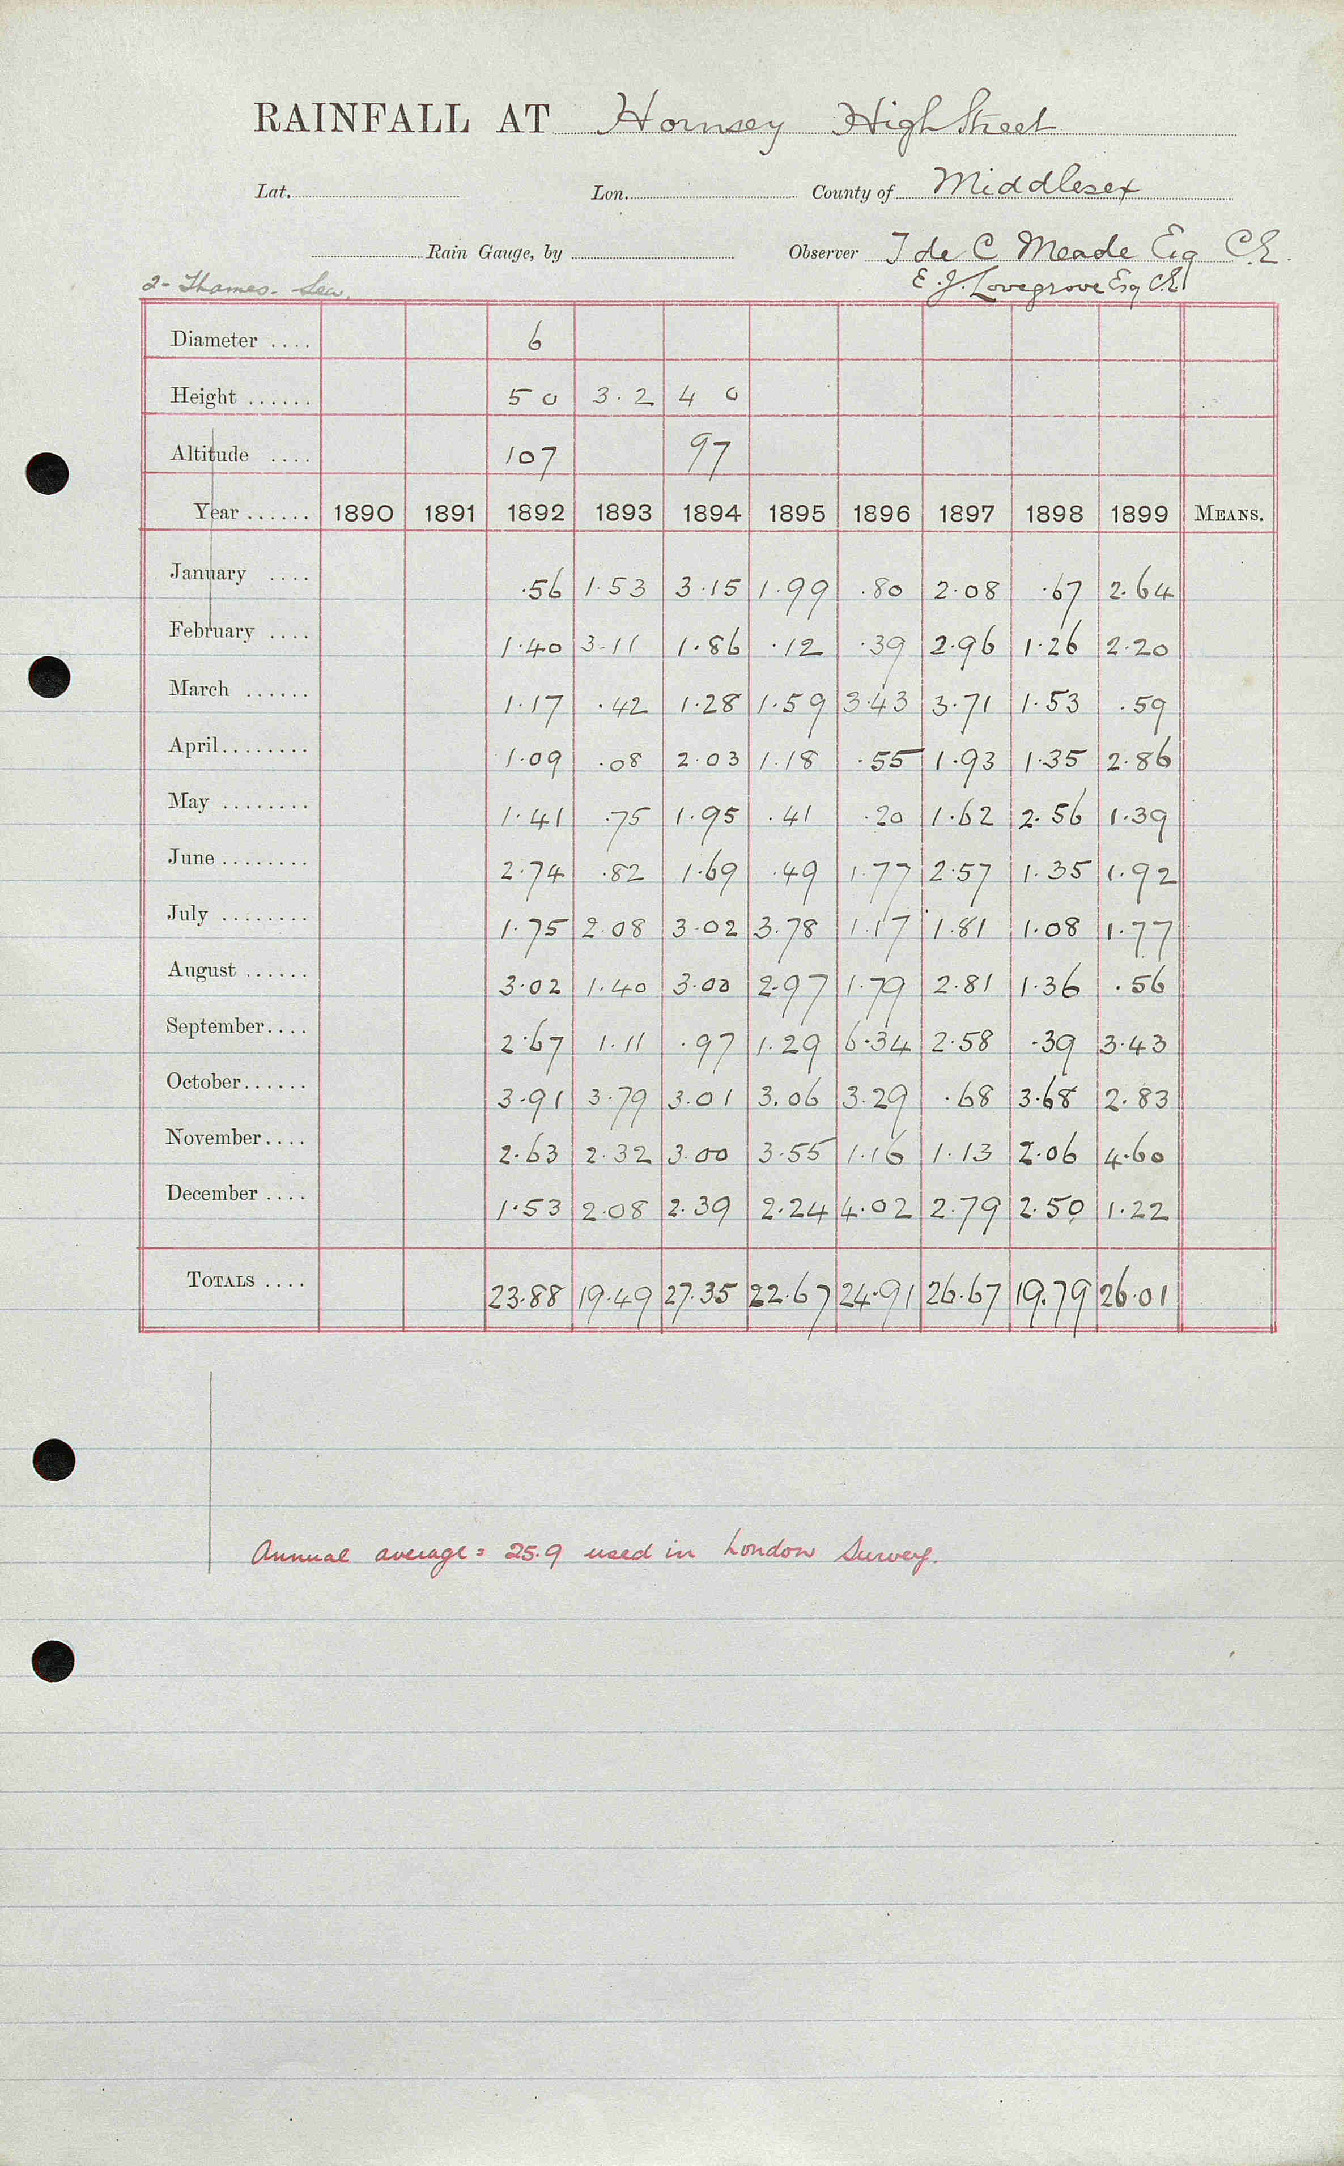 RAINFALL AT Hornsey High Street
Lat. Lon. County of Middlesex
Rain Gauge, by Observer T de C Meade Esq C.E.
2 - Thames - Lea. E. J. Lovegrove Esq C.E.
Diameter .... 6
Height ...... 5 0 3.2 4 0
Altitude .... 107 97
Year ...... 1890 1891 1892 1893 1894 1895 1896 1897 1898 1899 MEANS.
January .... .56 1.53 3.15 1.99 .80 2.08 .67 2.64
February .... 1.40 3.11 1.86 .12 .39 2.96 1.26 2.20
March ...... 1.17 .42 1.28 1.59 3.43 3.71 1.53 .59
April ........ 1.09 .08 2.03 1.18 .55 1.93 1.35 2.86
May ........ 1.41 .75 1.95 .41 .20 1.62 2.56 1.39
June ........ 2.74 .82 1.69 .49 1.77 2.57 1.35 1.92
July ........ 1.75 2.08 3.02 3.78 1.17 1.81 1.08 1.77
August ...... 3.02 1.40 3.00 2.97 1.79 2.81 1.36 .56
September .... 2.67 1.11 .97 1.29 6.34 2.58 .39 3.43
October ...... 3.91 3.79 3.01 3.06 3.29 .68 3.68 2.83
November .... 2.63 2.32 3.00 3.55 1.16 1.13 2.06 4.60
December .... 1.53 2.08 2.39 2.24 4.02 2.79 2.50 1.22
TOTALS .... 23.88 19.49 27.35 22.67 24.91 26.67 19.79 26.01
Annual average = 25.9 used in London Survey.